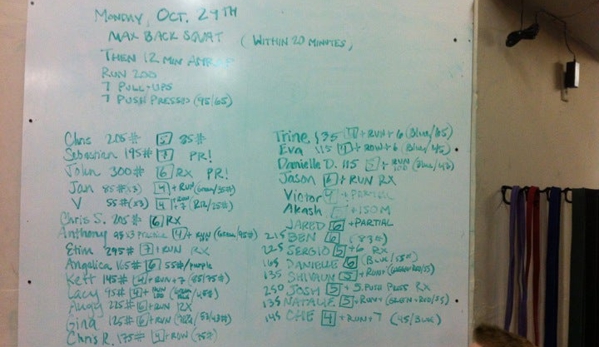 MONDAY, OCT. 29TH
MAX BACK SQUAT (WITHIN 20 MINUTES)
THEN 12 MIN AMRAP
RUN 200
7 PULL-UPS
7 PUSH PRESSES (95/65)
Chris 205# 5 85#
Sebastien 195# 7 PR!
John 300# 6 RX PR!
Jan 85#(x3) 4 + RUN
V 55#(x3) 4
Chris S. 205# 6 RX
Anthony 4 + RUN
Etim 295# 7 + RUN RX
Angelica 165# 6 55#/purple
Kett 145# 4 + RUN + 7
Lacy 95# 4
225# 6 + RUN RX
Gina 125# 6 + RUN
Chris R. 175# 4 + RUN
Trine 135 + RUN + 6 (Blue/65)
Eva 115 4 + RUN + 6 (Blue/45)
Danielle D. 115 5 + RUN (Blue/45)
Jason 6 + RUN RX
Victor 4 + PARTIAL
Akash 5 + 150M
JARED 6 + PARTIAL
215 BEN 6
225 SERGIO 5 + 6 RX
165 DANIELLE 6
135 5 + RUN
250 JOSH 5 + 5 PUSH PRESS RX
135 NATALIE 5 + RUN
145 CHE 4 + RUN + 7 (45/BLUE)